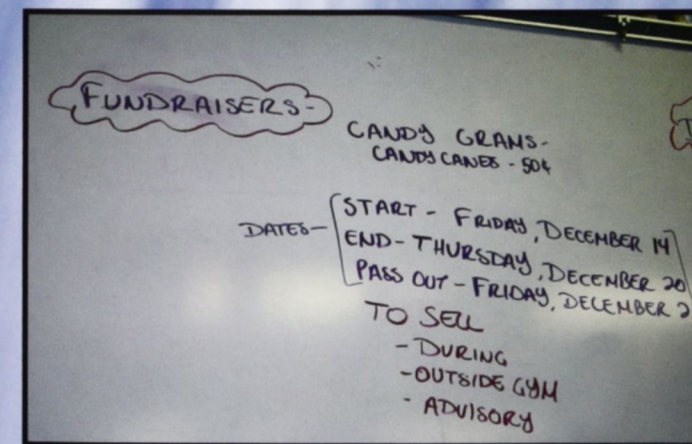 FUNDRAISERS-
CANDY GRAMS-
CANDY CANES - 50¢
DATES-
START - FRIDAY, DECEMBER 14
END - THURSDAY, DECEMBER 20
PASS OUT - FRIDAY, DECEMBER 2
TO SELL
- DURING
- OUTSIDE GYM
- ADVISORY